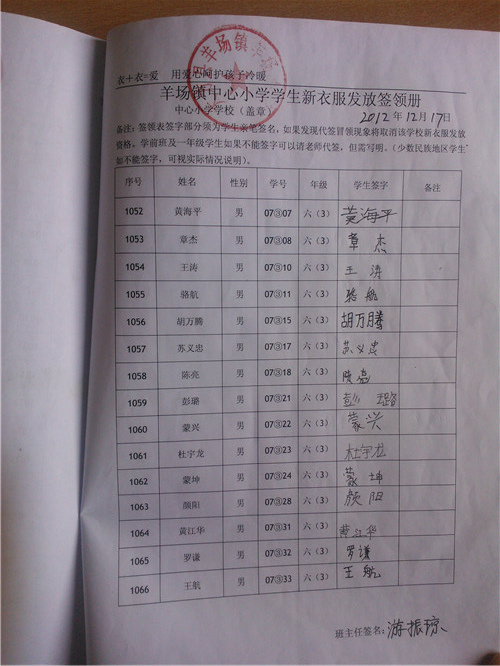 衣+衣=爱 用爱心呵护孩子冷暖
羊场镇中心小学学生新衣服发放签领册
中心小学学校(盖章) 2012年12月17日
备注:签领表签字部分须为学生亲笔签名,如果发现代签冒领现象将取消该学校新衣服发放
资格,学前班及一年级学生如果不能签字可以请老师代签,但需写明。(少数民族地区学生
如不能签字,可视实际情况说明)。
序号 姓名 性别 学号 年级 学生签字 备注
1052 黄海平 男 07③07 六(3) 黄海平
1053 章杰 男 07③08 六(3) 章杰
1054 王涛 男 07③10 六(3) 王涛
1055 骆航 男 07③11 六(3) 骆航
1056 胡万腾 男 07③15 六(3) 胡万腾
1057 苏义忠 男 07③17 六(3) 苏义忠
1058 陈亮 男 07③18 六(3) 陈亮
1059 彭璐 男 07③21 六(3) 彭璐
1060 蒙兴 男 07③22 六(3) 蒙兴
1061 杜宇龙 男 07③23 六(3) 杜宇龙
1062 蒙坤 男 07③24 六(3) 蒙坤
1063 颜阳 男 07③28 六(3) 颜阳
1064 黄江华 男 07③31 六(3) 黄江华
1065 罗谦 男 07③32 六(3) 罗谦
1066 王航 男 07③33 六(3) 王航
班主任签名:游振琼